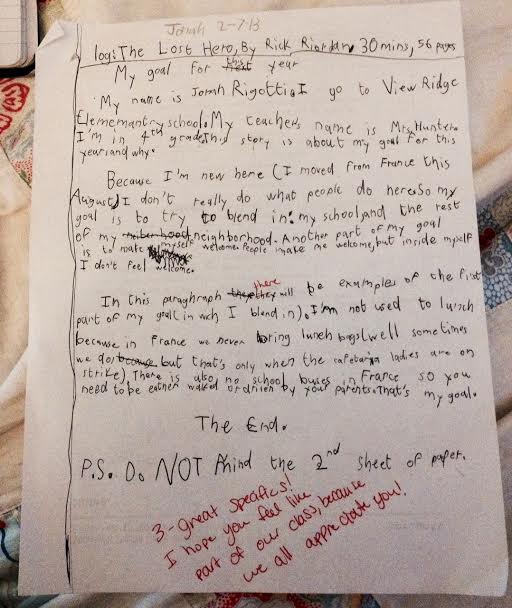 Jonah 2-7-13
log: The Lost Hero, By Rick Riordan 30 mins, 56 pages
My goal for this year
My name is Jonah Rigotti. I go to View Ridge
Elemementry school. My teachers name is Mrs. Hunter.
I'm in 4th grade. This story is about my goal for this
year and why.
Because I'm new here (I moved from France this
August) I don't really do what people do here. So my
goal is to try to blend in: my school, and the rest
of my neighborhood. Another part of my goal
is to make myself welcome. People make me welcome, but inside myself
I don't feel welcome.
In this paraghraph there will be examples of the first
part of my goal (in wich I blend in). I'm not used to lunch
because in France we never bring lunch bags (well sometimes
we do, but that's only when the cafetaria ladies are on
strike) There is also no school buses in France so you
need to be eather walked or driven by your parents. That's my goal.
The End.
P.S. Do NOT mind the 2nd sheet of paper.
3-great specifics!
I hope you feel like
part of our class, because
we all appreciate you!